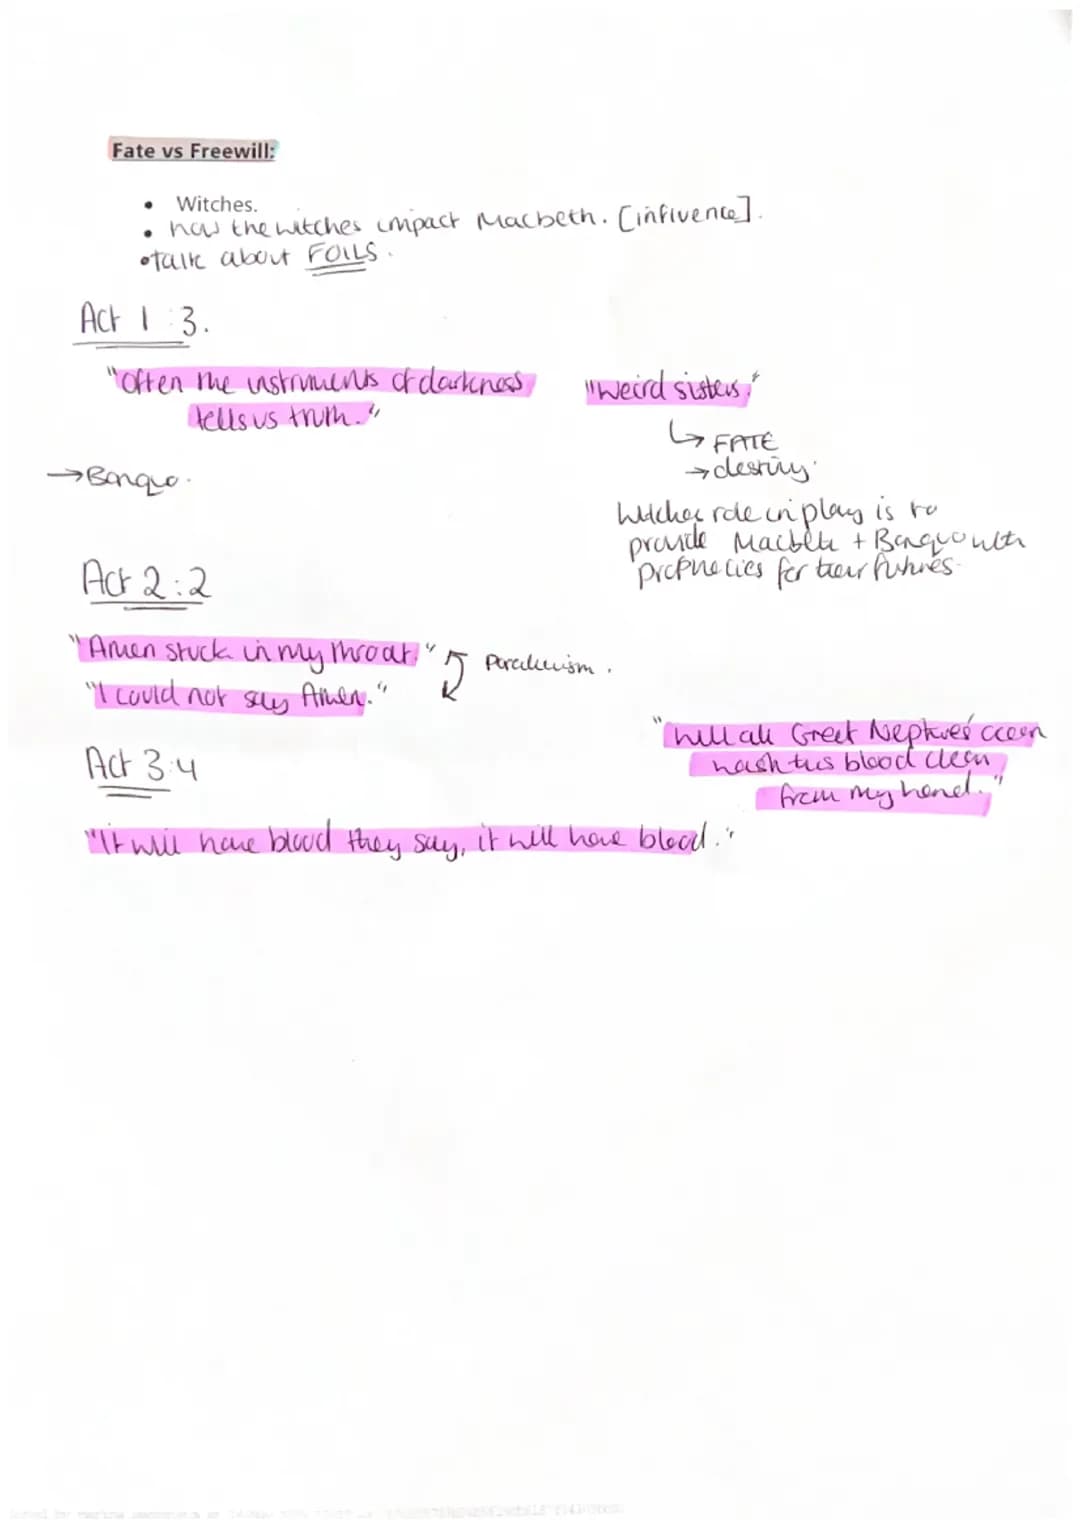 Fate vs Freewill:
• Witches.
• how the witches impact Macbeth. [influence].
• talk about FOILS.
Act 1:3.
"Often the instruments of darkness
tells us truth."
→ Banquo.
"Weird sisters."
↳ FATE
→ destiny.
Witches role in play is to
provide Macbeth + Banquo with
prophecies for their futures.
Act 2:2
"Amen stuck in my throat."
"I could not say Amen."
Parallelism.
"Will all Great Neptunes' ocean
wash this blood clean
from my hand."
Act 3:4
"It will have blood they say, it will have blood."